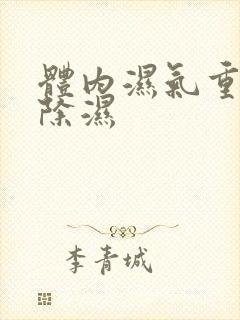 體內濕氣重
除濕
李青城